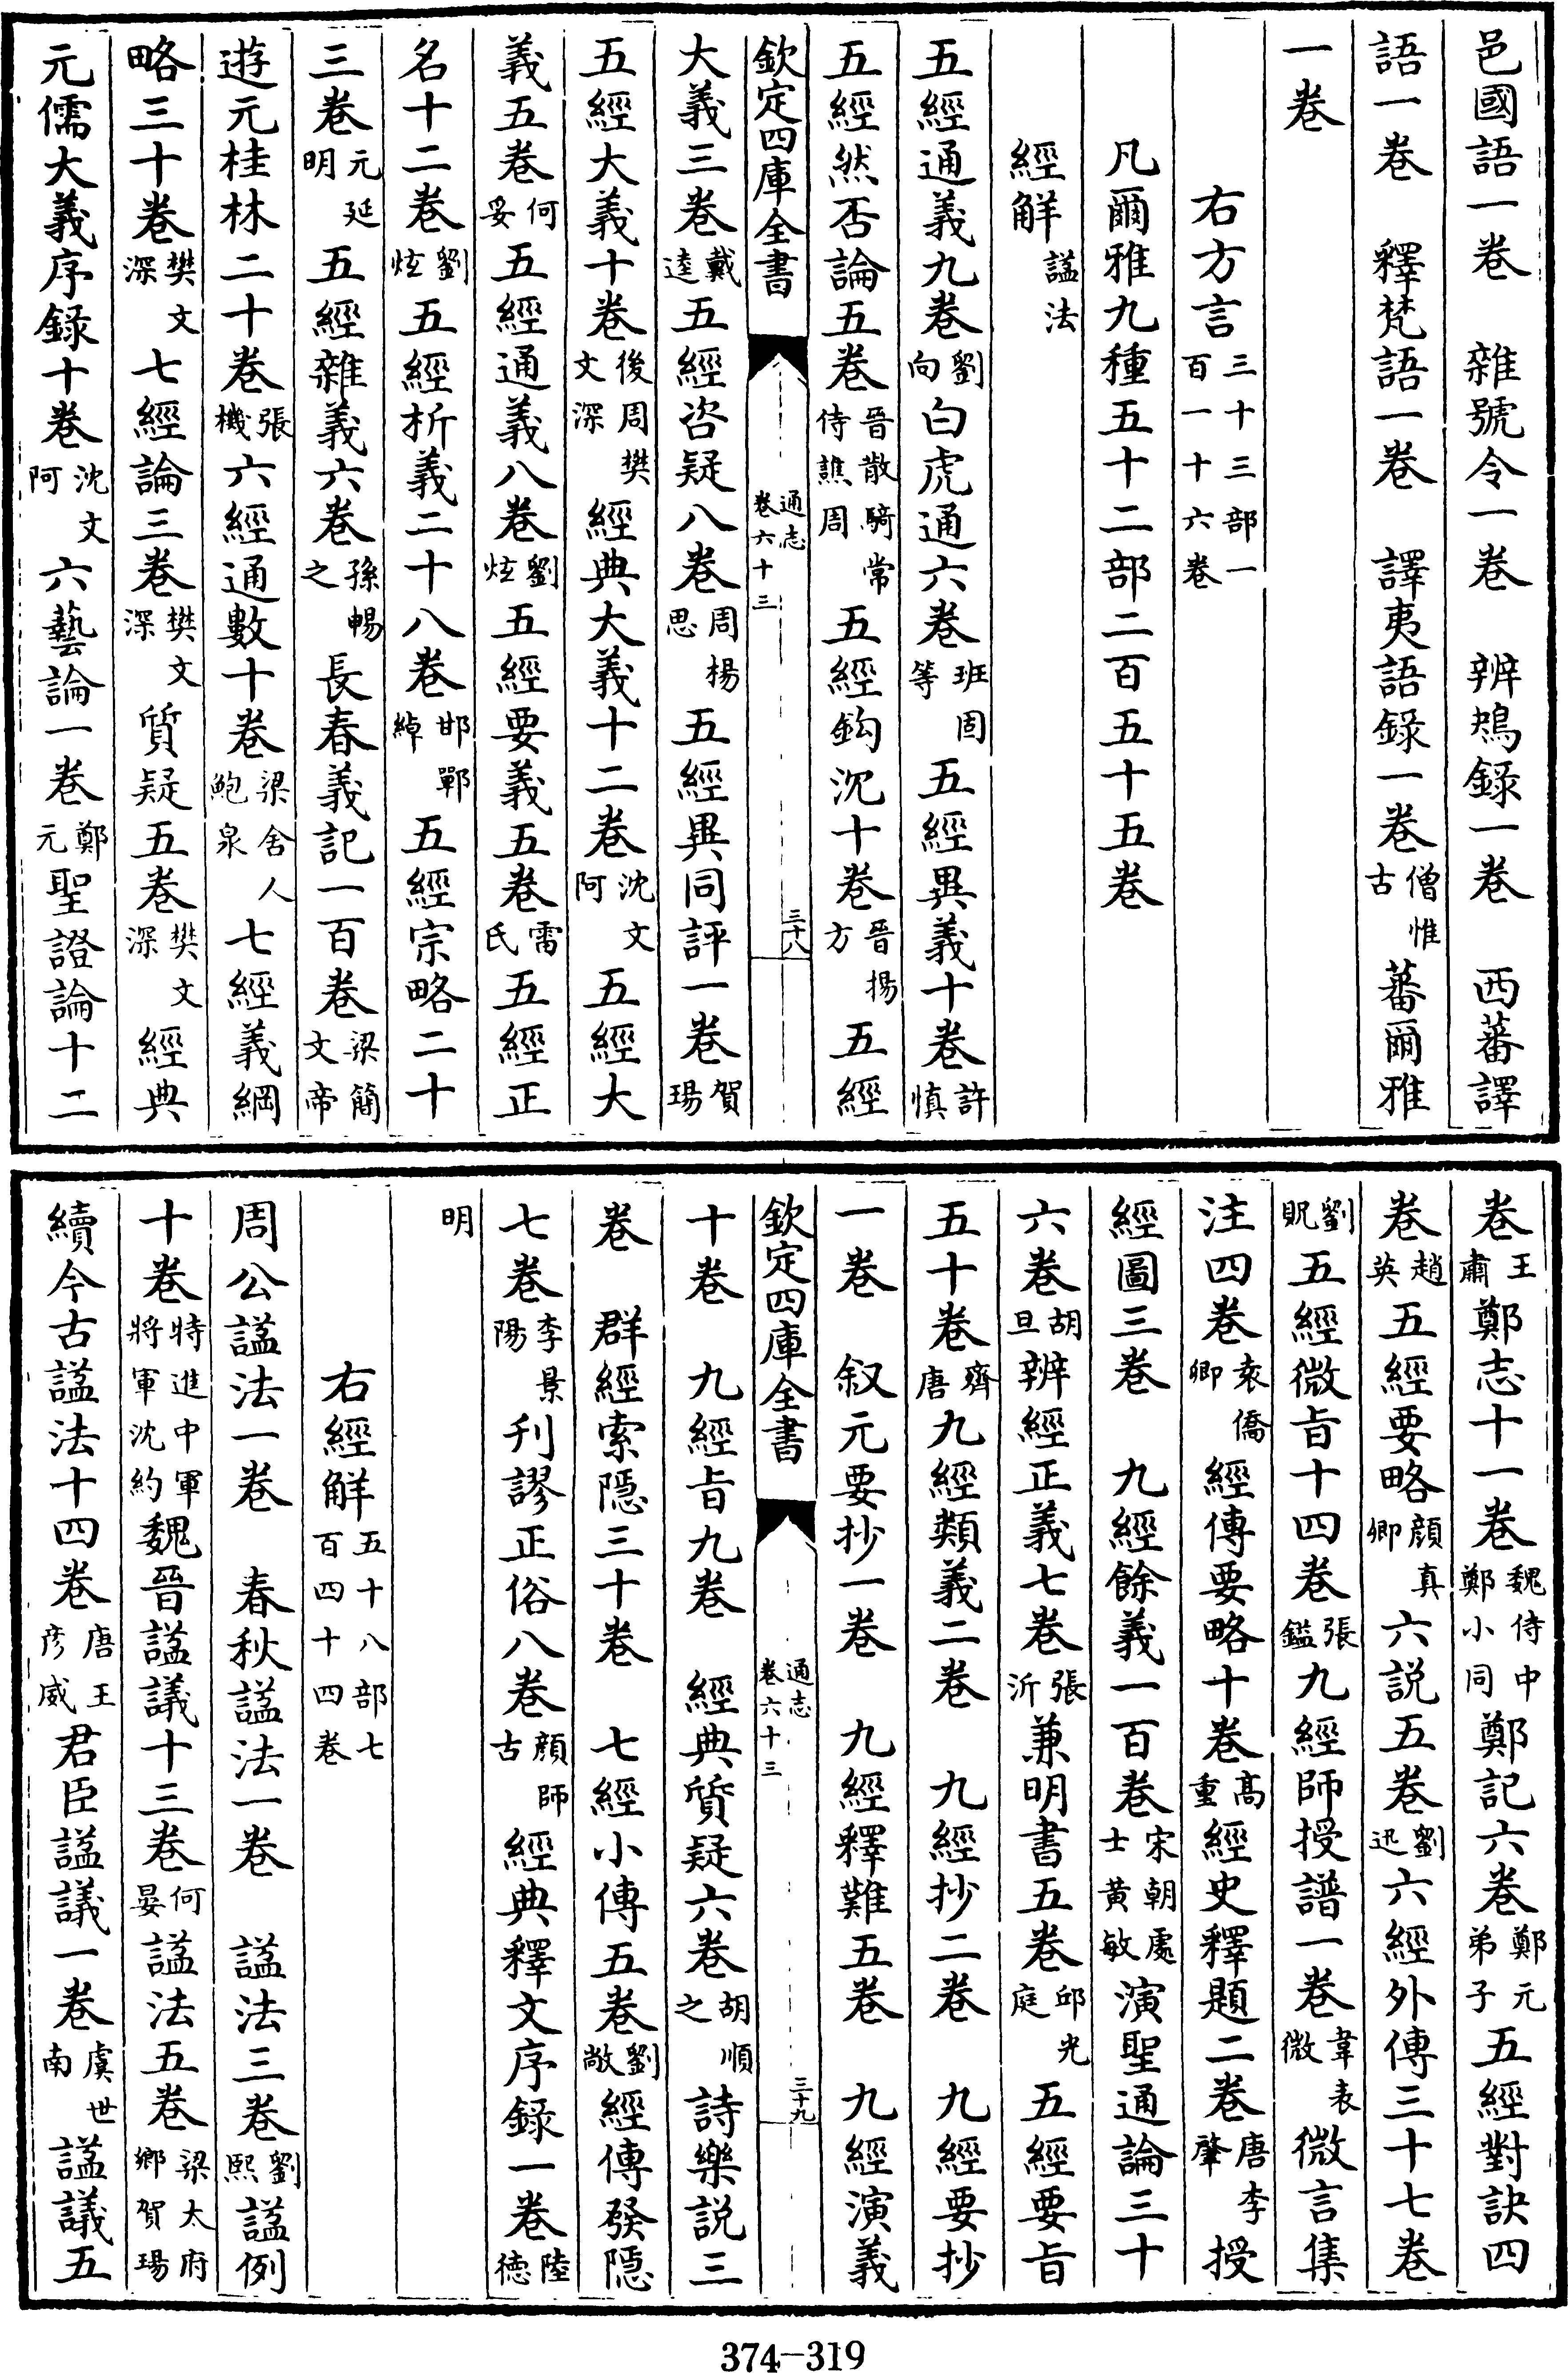 邑國語一卷　雜號令一卷　辨鴆録一卷　西蕃譯
語一卷　釋梵語一卷　譯夷語録一卷僧惟古蕃爾雅
一卷
右方言三十三部一百一十六卷
凡爾雅九種五十二部二百五十五卷
經解諡法
五經通義九卷劉向白虎通六卷班固等五經異義十卷許慎
五經然否論五卷晉散騎常侍譙周五經鈎沉十卷晉楊方五經
欽定四庫全書　通志卷六十三　三十八
大義三卷戴逵五經咨疑八卷周楊思五經異同評一卷賀瑒
五經大義十卷後周樊文深經典大義十二卷沈文阿五經大
義五卷何妥五經通義八卷劉炫五經要義五卷雷氏五經正
名十二卷劉炫五經析義二十八卷邯鄲綽五經宗略二十
三卷元延明五經雜義六卷孫暢之長春義記一百卷梁簡文帝
遊元桂林二十卷張機六經通數十卷梁舍人鮑泉七經義綱
略三十卷樊文深七經論三卷樊文深質疑五卷樊文深經典
元儒大義序録十卷沈文阿六藝論一卷鄭元聖證論十二
卷王肅鄭志十一卷魏侍中鄭小同鄭記六卷鄭元弟子五經對訣四
卷趙英五經要略顏真卿六説五卷劉迅六經外傳三十七卷
劉貺五經微旨十四卷張鎰九經師授譜一卷韋表微微言集
注四卷袁僑卿經傳要略十卷高重經史釋題二卷唐李肇授
經圖三卷　九經餘義一百卷宋朝處士黄敏演聖通論三十
六卷胡旦辨經正義七卷張沂兼明書五卷邱光庭五經要旨
五十卷齊唐九經類義二卷　九經抄二卷　九經要抄
一卷　叙元要抄一卷　九經釋難五卷　九經演義
欽定四庫全書　通志卷六十三　三十九
十卷　九經旨九卷　經典質疑六卷胡順之詩樂説三
卷　群經索隱三十卷　七經小傳五卷劉敞經傳發隱
七卷李景陽刋謬正俗八卷顏師古經典釋文序録一卷陸德
明
右經解五十八部七百四十四卷
周公諡法一卷　春秋諡法一卷　諡法三卷劉熙諡例
十卷特進中軍將軍沈約魏晉諡議十三卷何晏諡法五卷梁太府鄉賀瑒
續今古諡法十四卷唐王彦威君臣諡議一卷虞世南諡議五
374-319